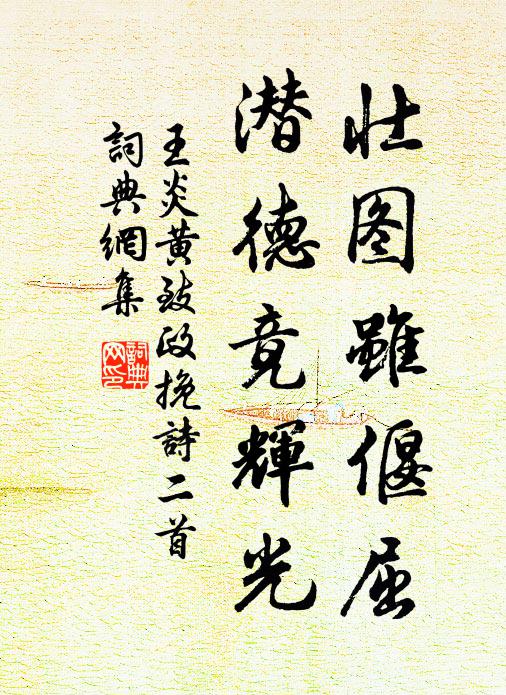 壮图雖偃屈
潜德竟輝光
王炎黄致政挽詩二首
詞典網集
詞典網印